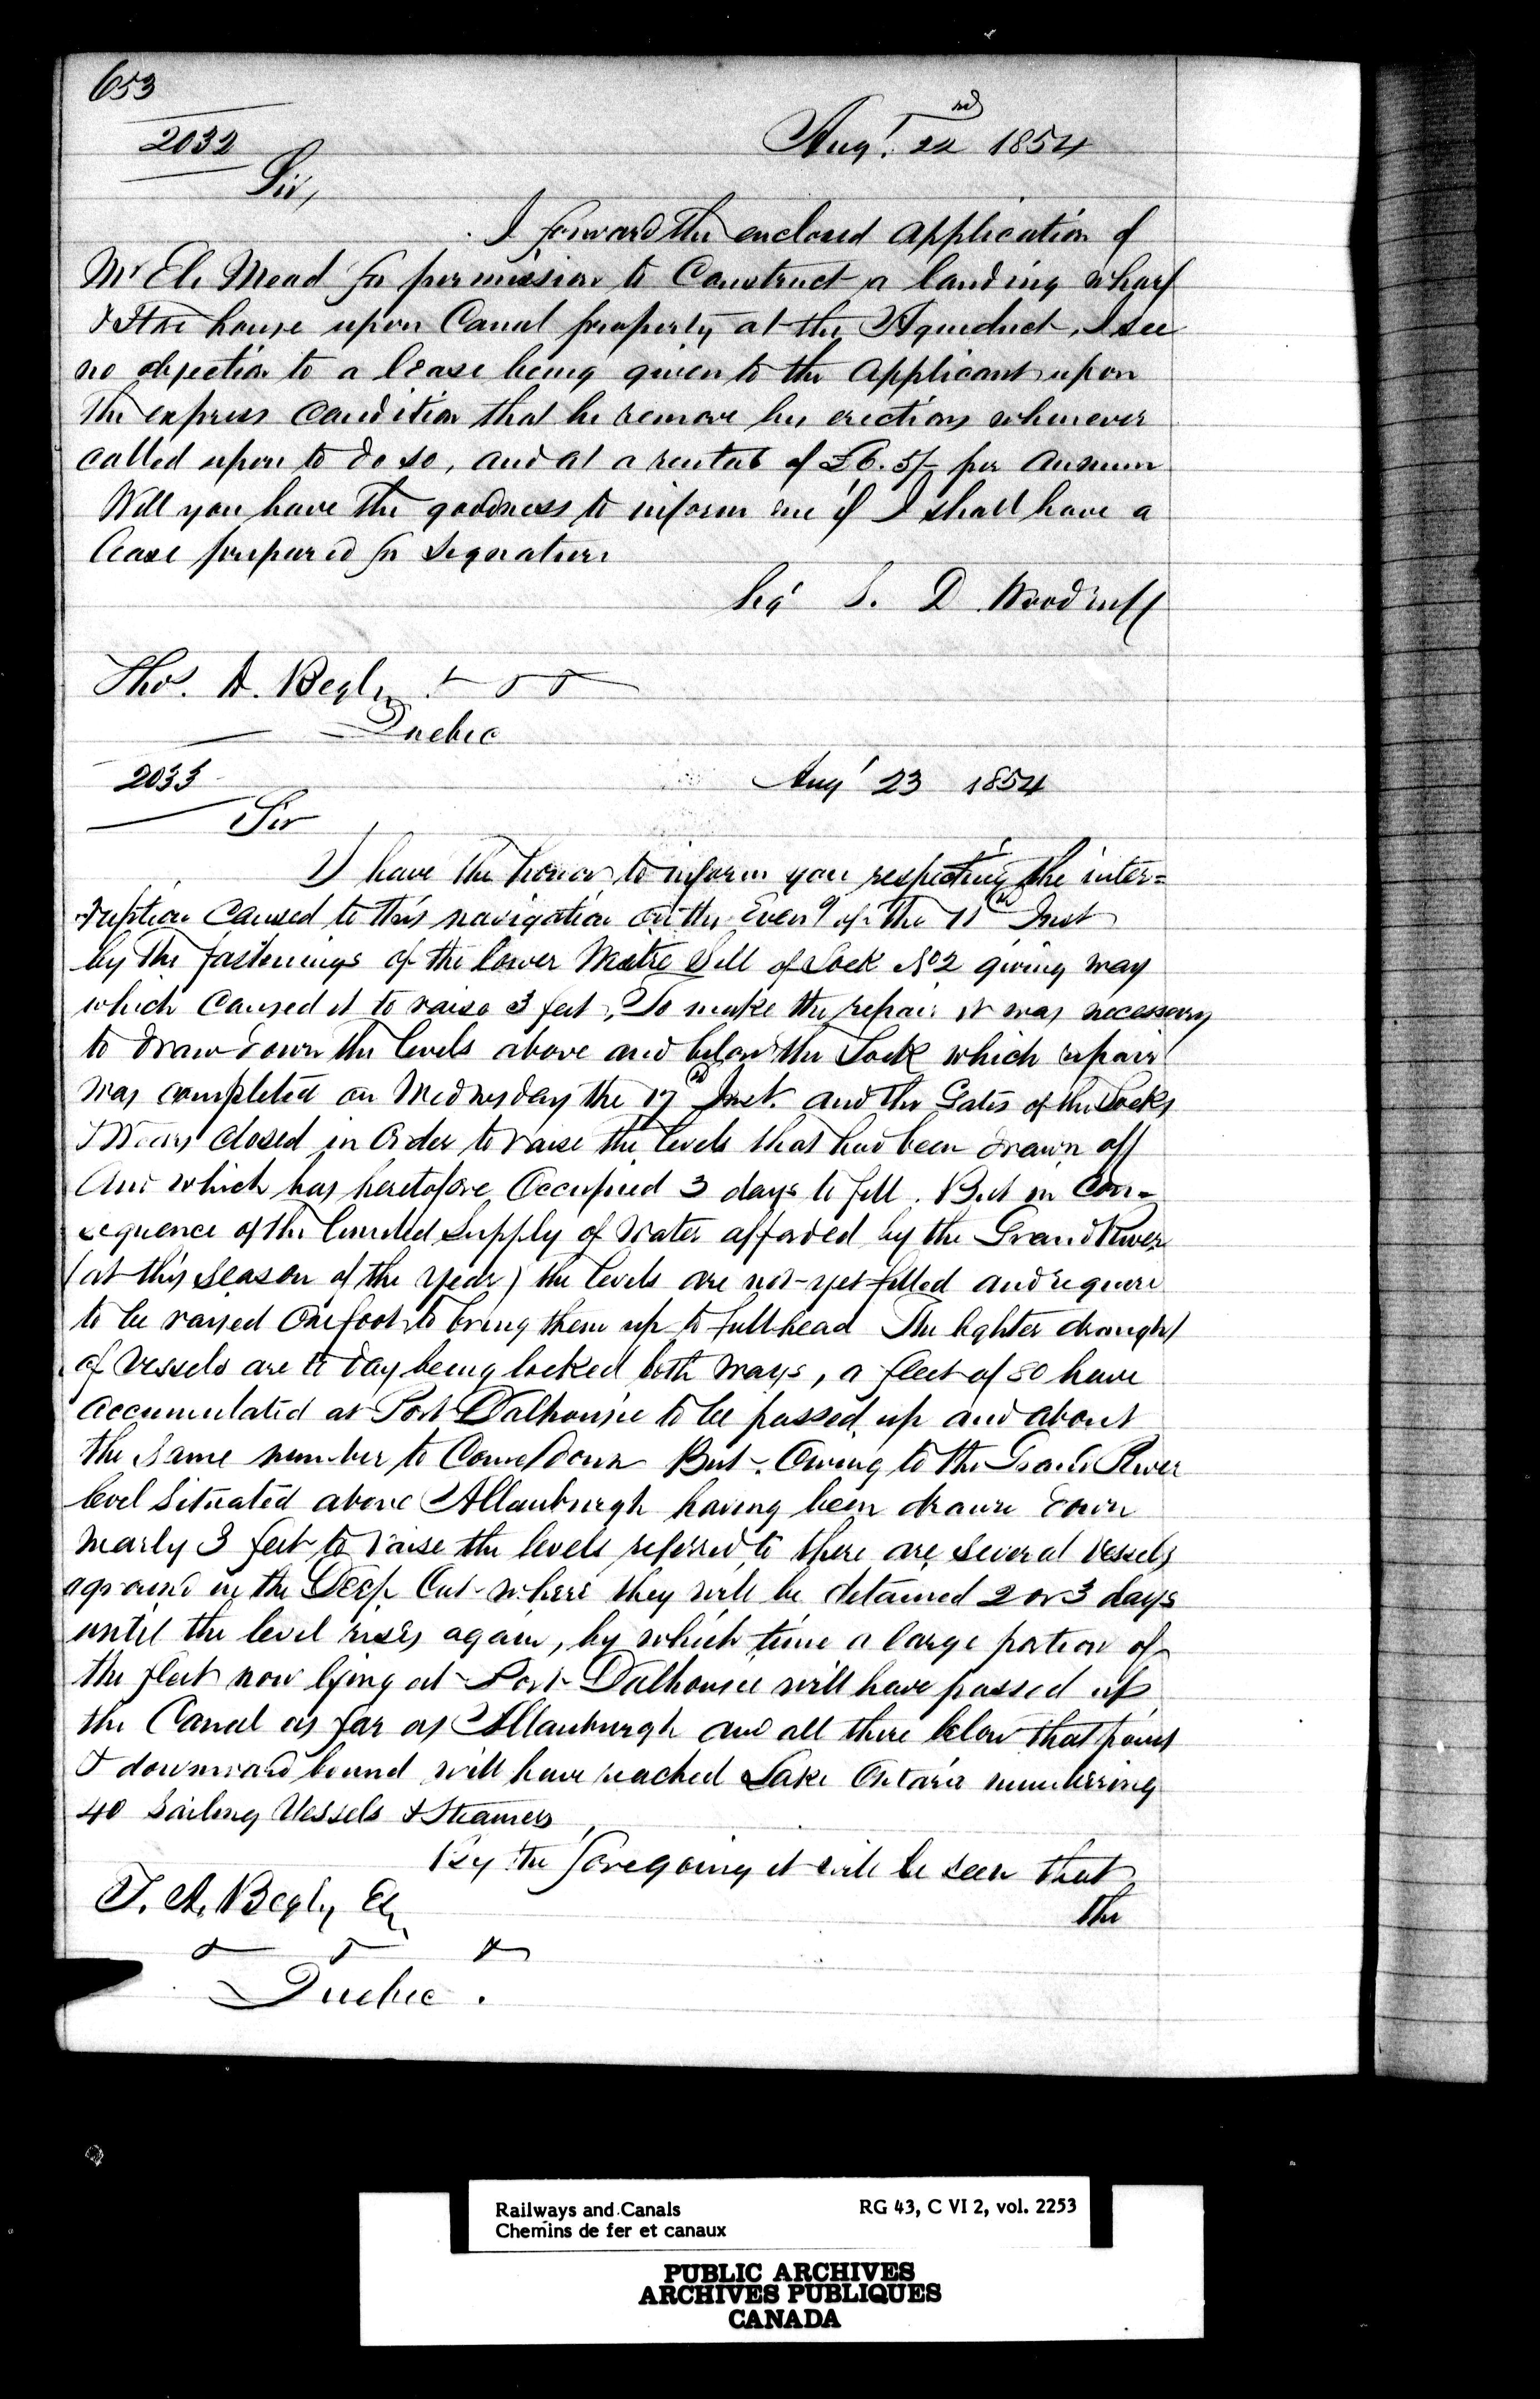 653
2032
Augt. 22nd 1854
Sir,
I forward the enclosed application of
Mr Eli Mead for permission to Construct a landing wharf
& Store house upon Canal property at the Aqueduct, I see
no objection to a lease being given to the Applicant upon
the express Condition that he remove his erections whenever
called upon to do so, and at a rental of £6.5/- per Annum
Will you have the goodness to inform me if I shall have a
lease prepared for signature
Sigd S. D. Woodruff
Thos. A. Begly & & &
Quebec
2033
Augt 23 1854
Sir
I have the honor to inform you respecting the inter=
ruption Caused to this navigation on the Eveng of the 11th Inst
by the fastenings of the lower Mitre Sill of Lock No 2 giving way
which Caused it to raise 3 feet. To make the repair it was necessary
to draw down the levels above and below the Lock which repair
was completed on Wednesday the 17th Inst. and the Gates of the Locks
& Weirs closed in Order to raise the levels that had been drawn off
And which has heretofore Occupied 3 days to fill. But in Con=
sequence of the limited Supply of Water afforded by the Grand River
(at this Season of the Year) the levels are not yet filled and require
to be raised One foot to bring them up to full head The lighter draught
of Vessels are to day being locked both ways, a fleet of 50 have
accumulated at Port Dalhousie to be passed up and about
the Same number to Come down But Owing to the Grand River
level Situated above Allanburgh having been drawn down
nearly 3 feet to raise the levels referred to there are Several Vessels
aground in the Deep Cut where they will be detained 2 or 3 days
until the level rises again, by which time a large portion of
the fleet now lying at Port Dalhousie will have passed up
the Canal as far as Allanburgh and all there below that point
& downward bound will have reached Lake Ontario numbering
40 Sailing Vessels & Steamers
By the foregoing it will be seen that
the
T. A. Begly Esq
& & &
Quebec.
Railways and Canals
Chemins de fer et canaux
RG 43, C VI 2, vol. 2253
PUBLIC ARCHIVES
ARCHIVES PUBLIQUES
CANADA